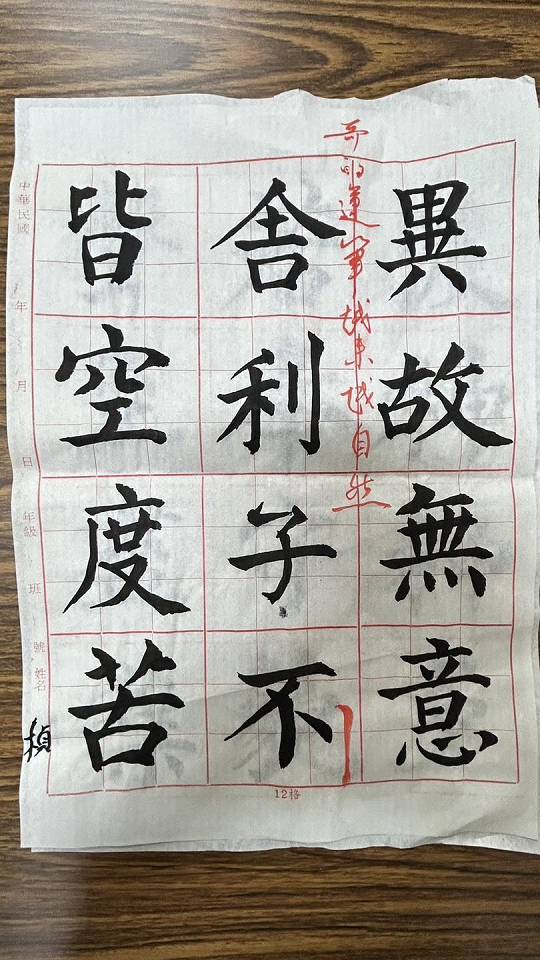 異故無意
舍利子不
皆空度苦
哥的運筆越來越自然
中華民國 年 月 日 年級 班 號 姓名
楨
12格